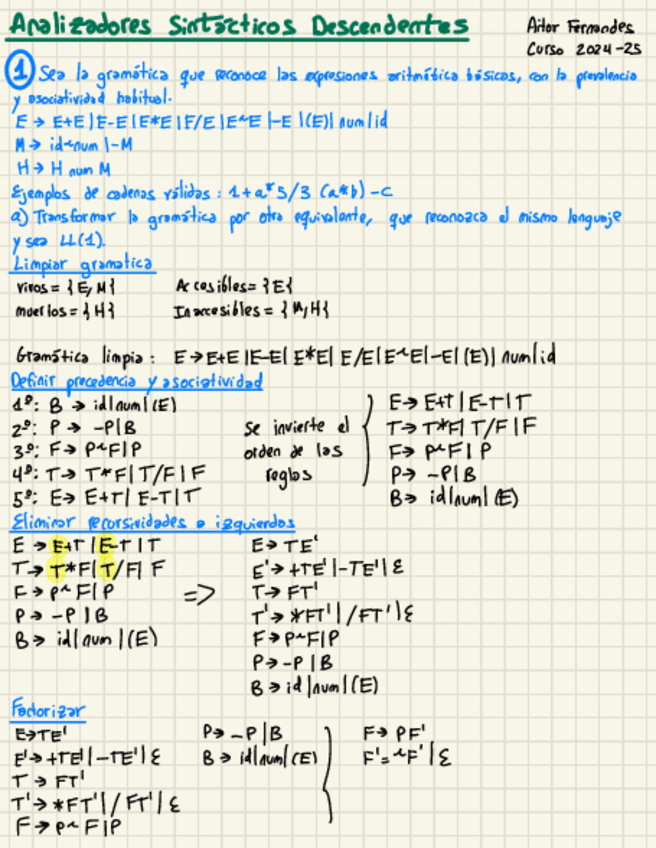 Analizadores Sintácticos Descendentes
Aitor Fernandes
Curso 2024-25
① Sea la gramática que reconoce las expresiones aritmética básicas, con la prevalencia
y asociatividad habitual.
E → E+E | E-E | E*E | E/E | E^E | -E | (E) | num | id
M → id^num | -M
H → H num M
Ejemplos de cadenas válidas: 1+a*5/3 (a*b)-c
a) Transformar la gramática por otra equivalente, que reconozca el mismo lenguaje
y sea LL(1).
Limpiar gramatica
vivos = {E, M} Accesibles = {E}
muertos = {H} Inaccesibles = {M, H}
Gramática limpia: E → E+E | E-E | E*E | E/E | E^E | -E | (E) | num | id
Definir precedencia y asociatividad
1º: B → id | num | (E)
2º: P → -P | B
3º: F → P^F | P
4º: T → T*F | T/F | F
5º: E → E+T | E-T | T
Se invierte el
orden de las
reglas
E → E+T | E-T | T
T → T*F | T/F | F
F → P^F | P
P → -P | B
B → id | num | (E)
Eliminar recursividades a izquierdas
E → E+T | E-T | T
T → T*F | T/F | F
F → P^F | P
P → -P | B
B → id | num | (E)
=>
E → TE'
E' → +TE' | -TE' | ε
T → FT'
T' → *FT' | /FT' | ε
F → P^F | P
P → -P | B
B → id | num | (E)
Factorizar
E → TE'
E' → +TE' | -TE' | ε
T → FT'
T' → *FT' | /FT' | ε
F → P^F | P
P → -P | B
B → id | num | (E)
F → PF'
F' = ^F' | ε